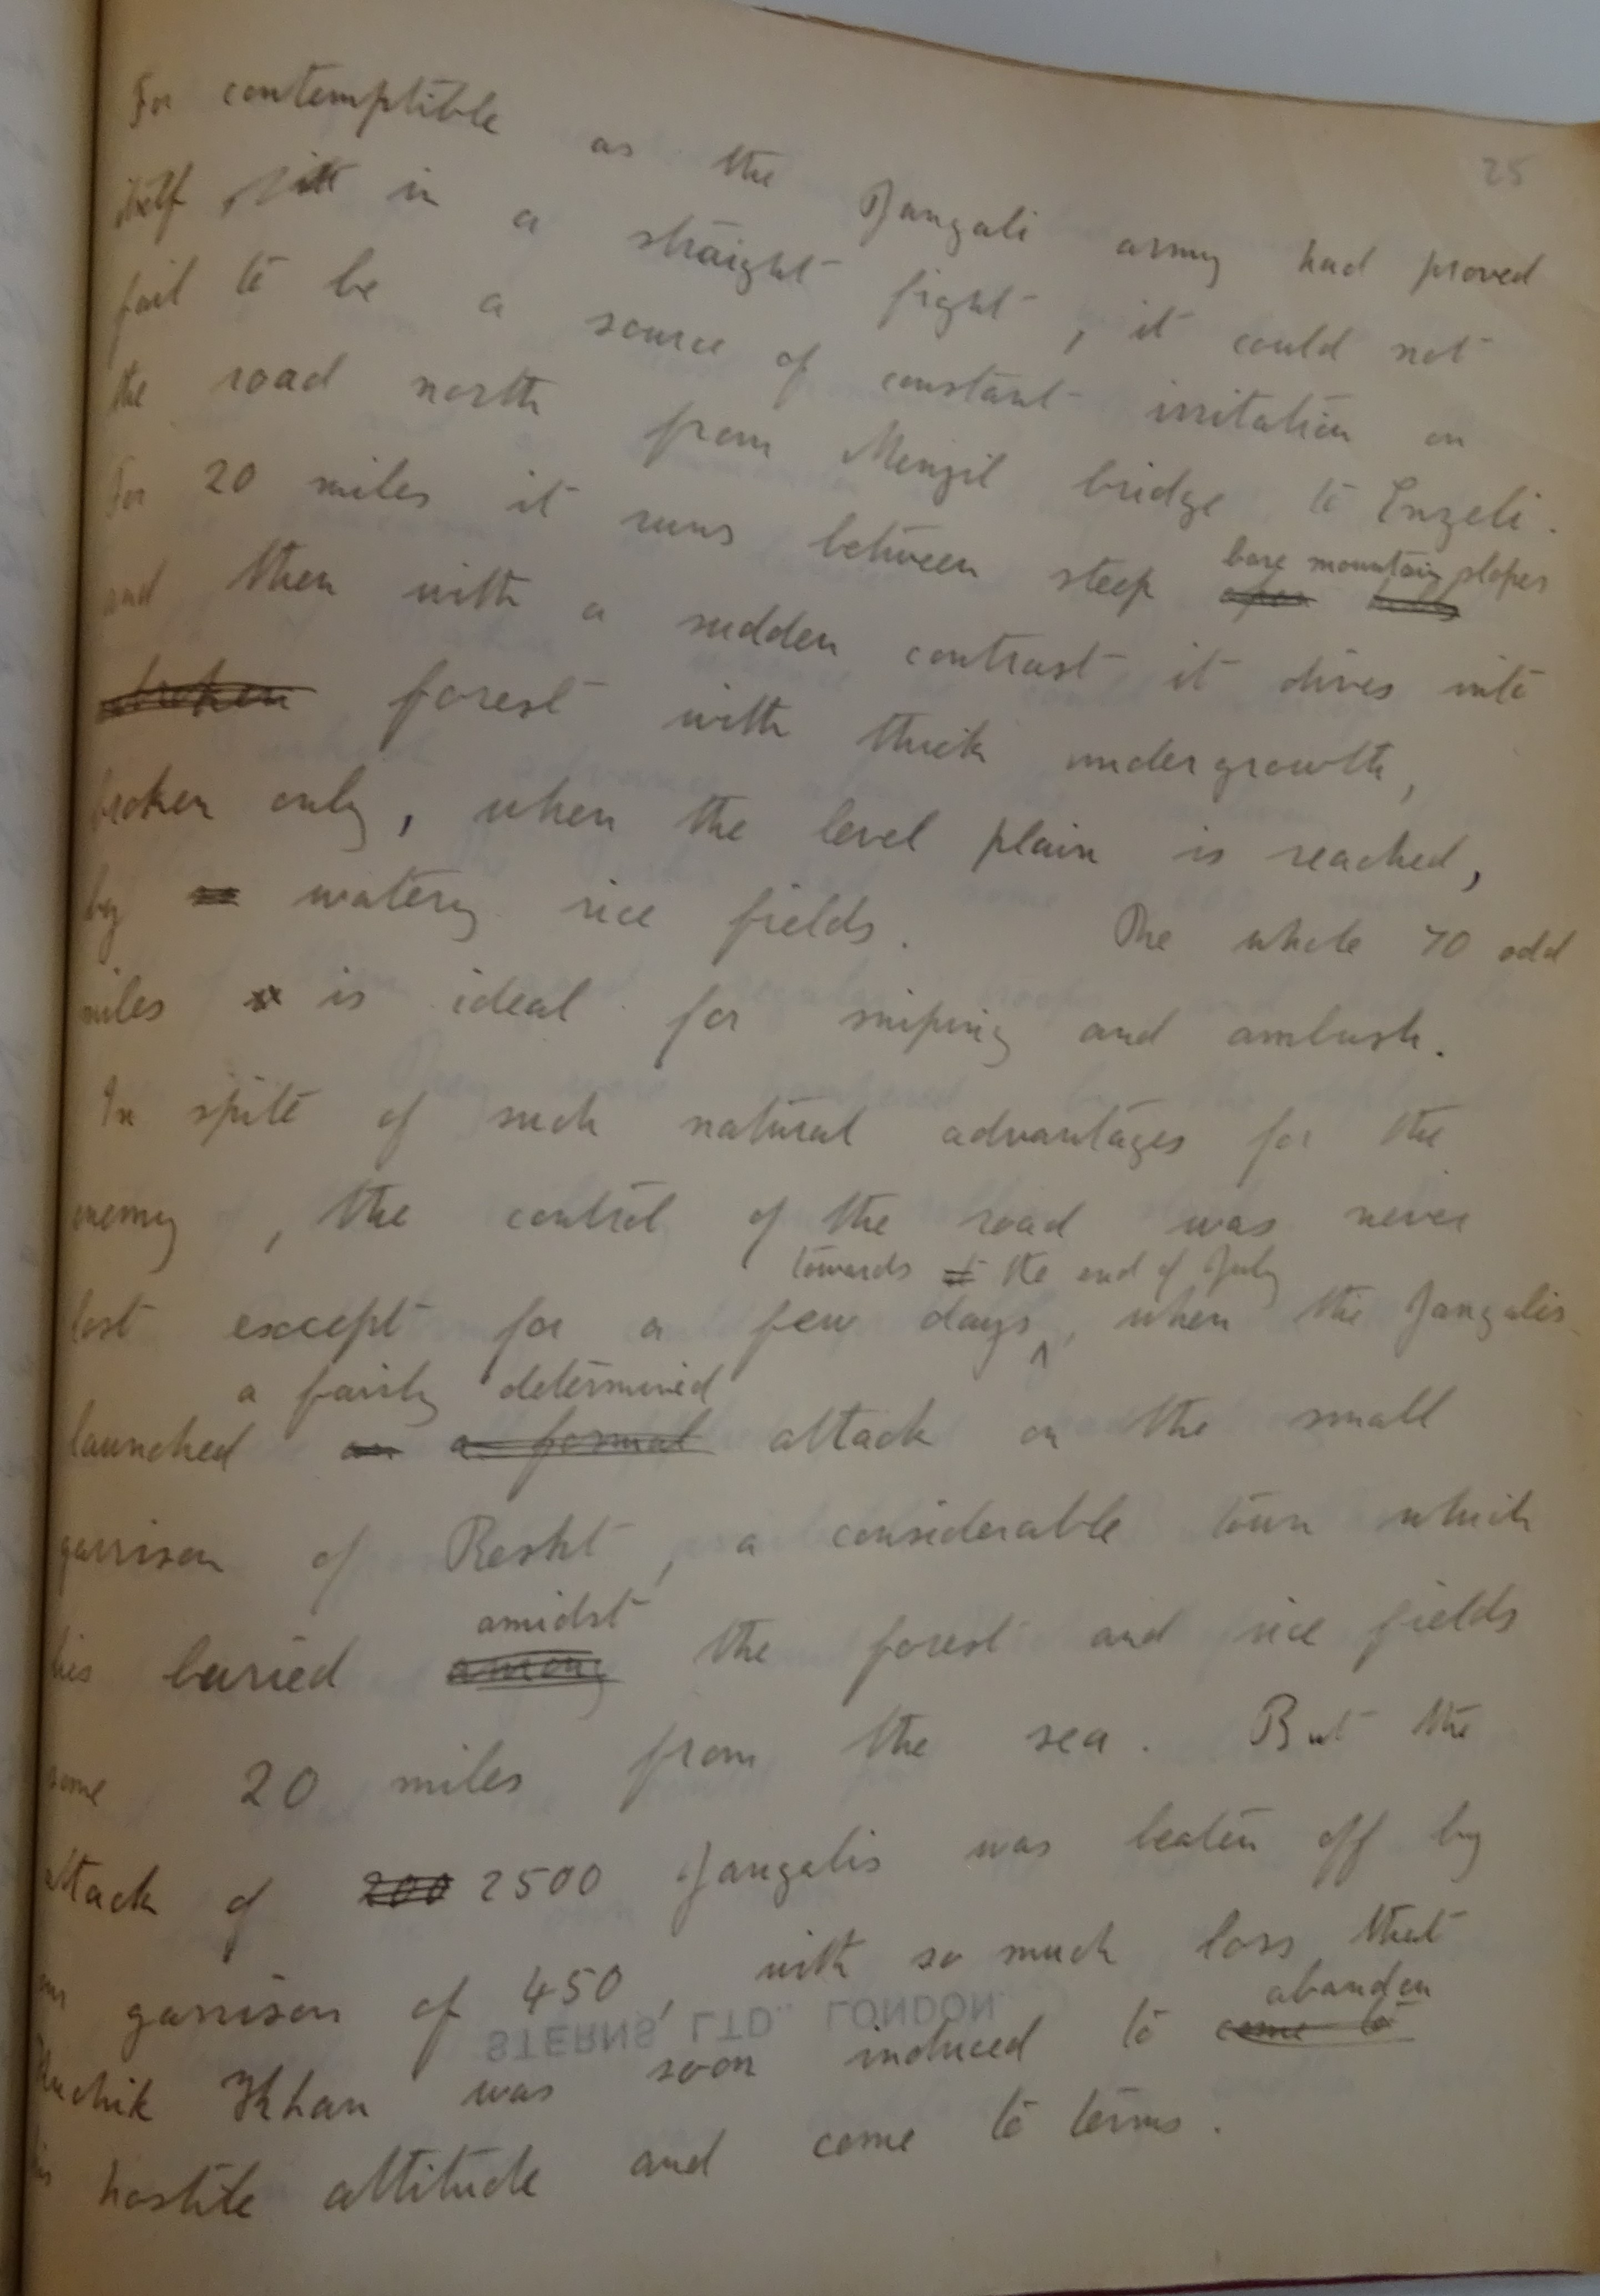 25
For contemptible as the Jangali army had proved
itself in a straight fight, it could not
fail to be a source of constant irritation on
the road north from Menzil bridge to Enzeli.
For 20 miles it runs between steep bare mountain slopes
and then with a sudden contrast it dives into
broken forest with thick undergrowth,
broken only, when the level plain is reached,
by watery rice fields. The whole 70 odd
miles is ideal for sniping and ambush.
In spite of such natural advantages for the
enemy, the control of the road was never
towards the end of July
lost except for a few days, when the Jangalis
a fairly determined
launched an a formal attack on the small
garrison of Resht, a considerable town which
amidst
lies buried among the forest and rice fields
some 20 miles from the sea. But the
attack of 200 2500 Jangalis was beaten off by
our garrison of 450, with so much loss that
abandon
Kuchik Khan was soon induced to come to
STERNS, LTD. LONDON.
his hostile attitude and come to terms.